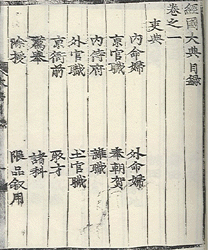 經國大典目錄
卷之一
吏典
內命婦 外命婦
京官職 奉朝賀
內侍府 雜職
外官職 土官職
京衙前 取才
薦擧 諸科
除授 限品敍用